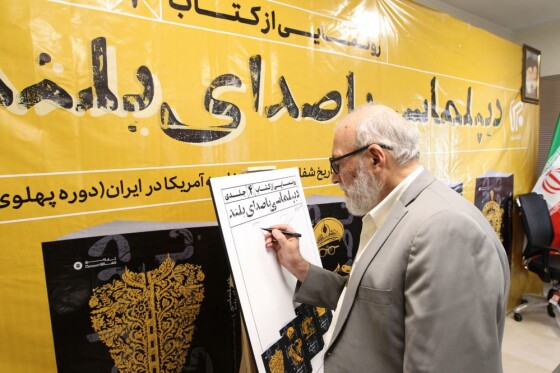 رونمایی از کتاب ۴
دیپلماسی با صدای بلند
آمریکا در ایران (دوره پهلوی
رونمایی از کتاب ۴ جلدی
دیپلماسی با صدای بلند